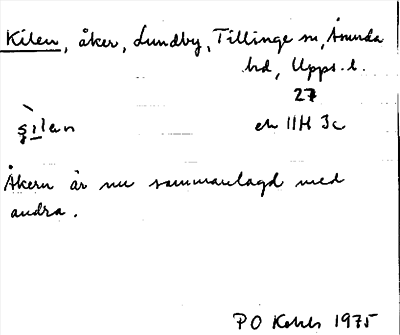 Kilen, åker, Lundby, Tillinge sn, Åsunda
hd, Upps. l.
27
ṣ̀ịlen ek 11H 3c
Åkern är nu sammanlagd med
andra.
P O 1975